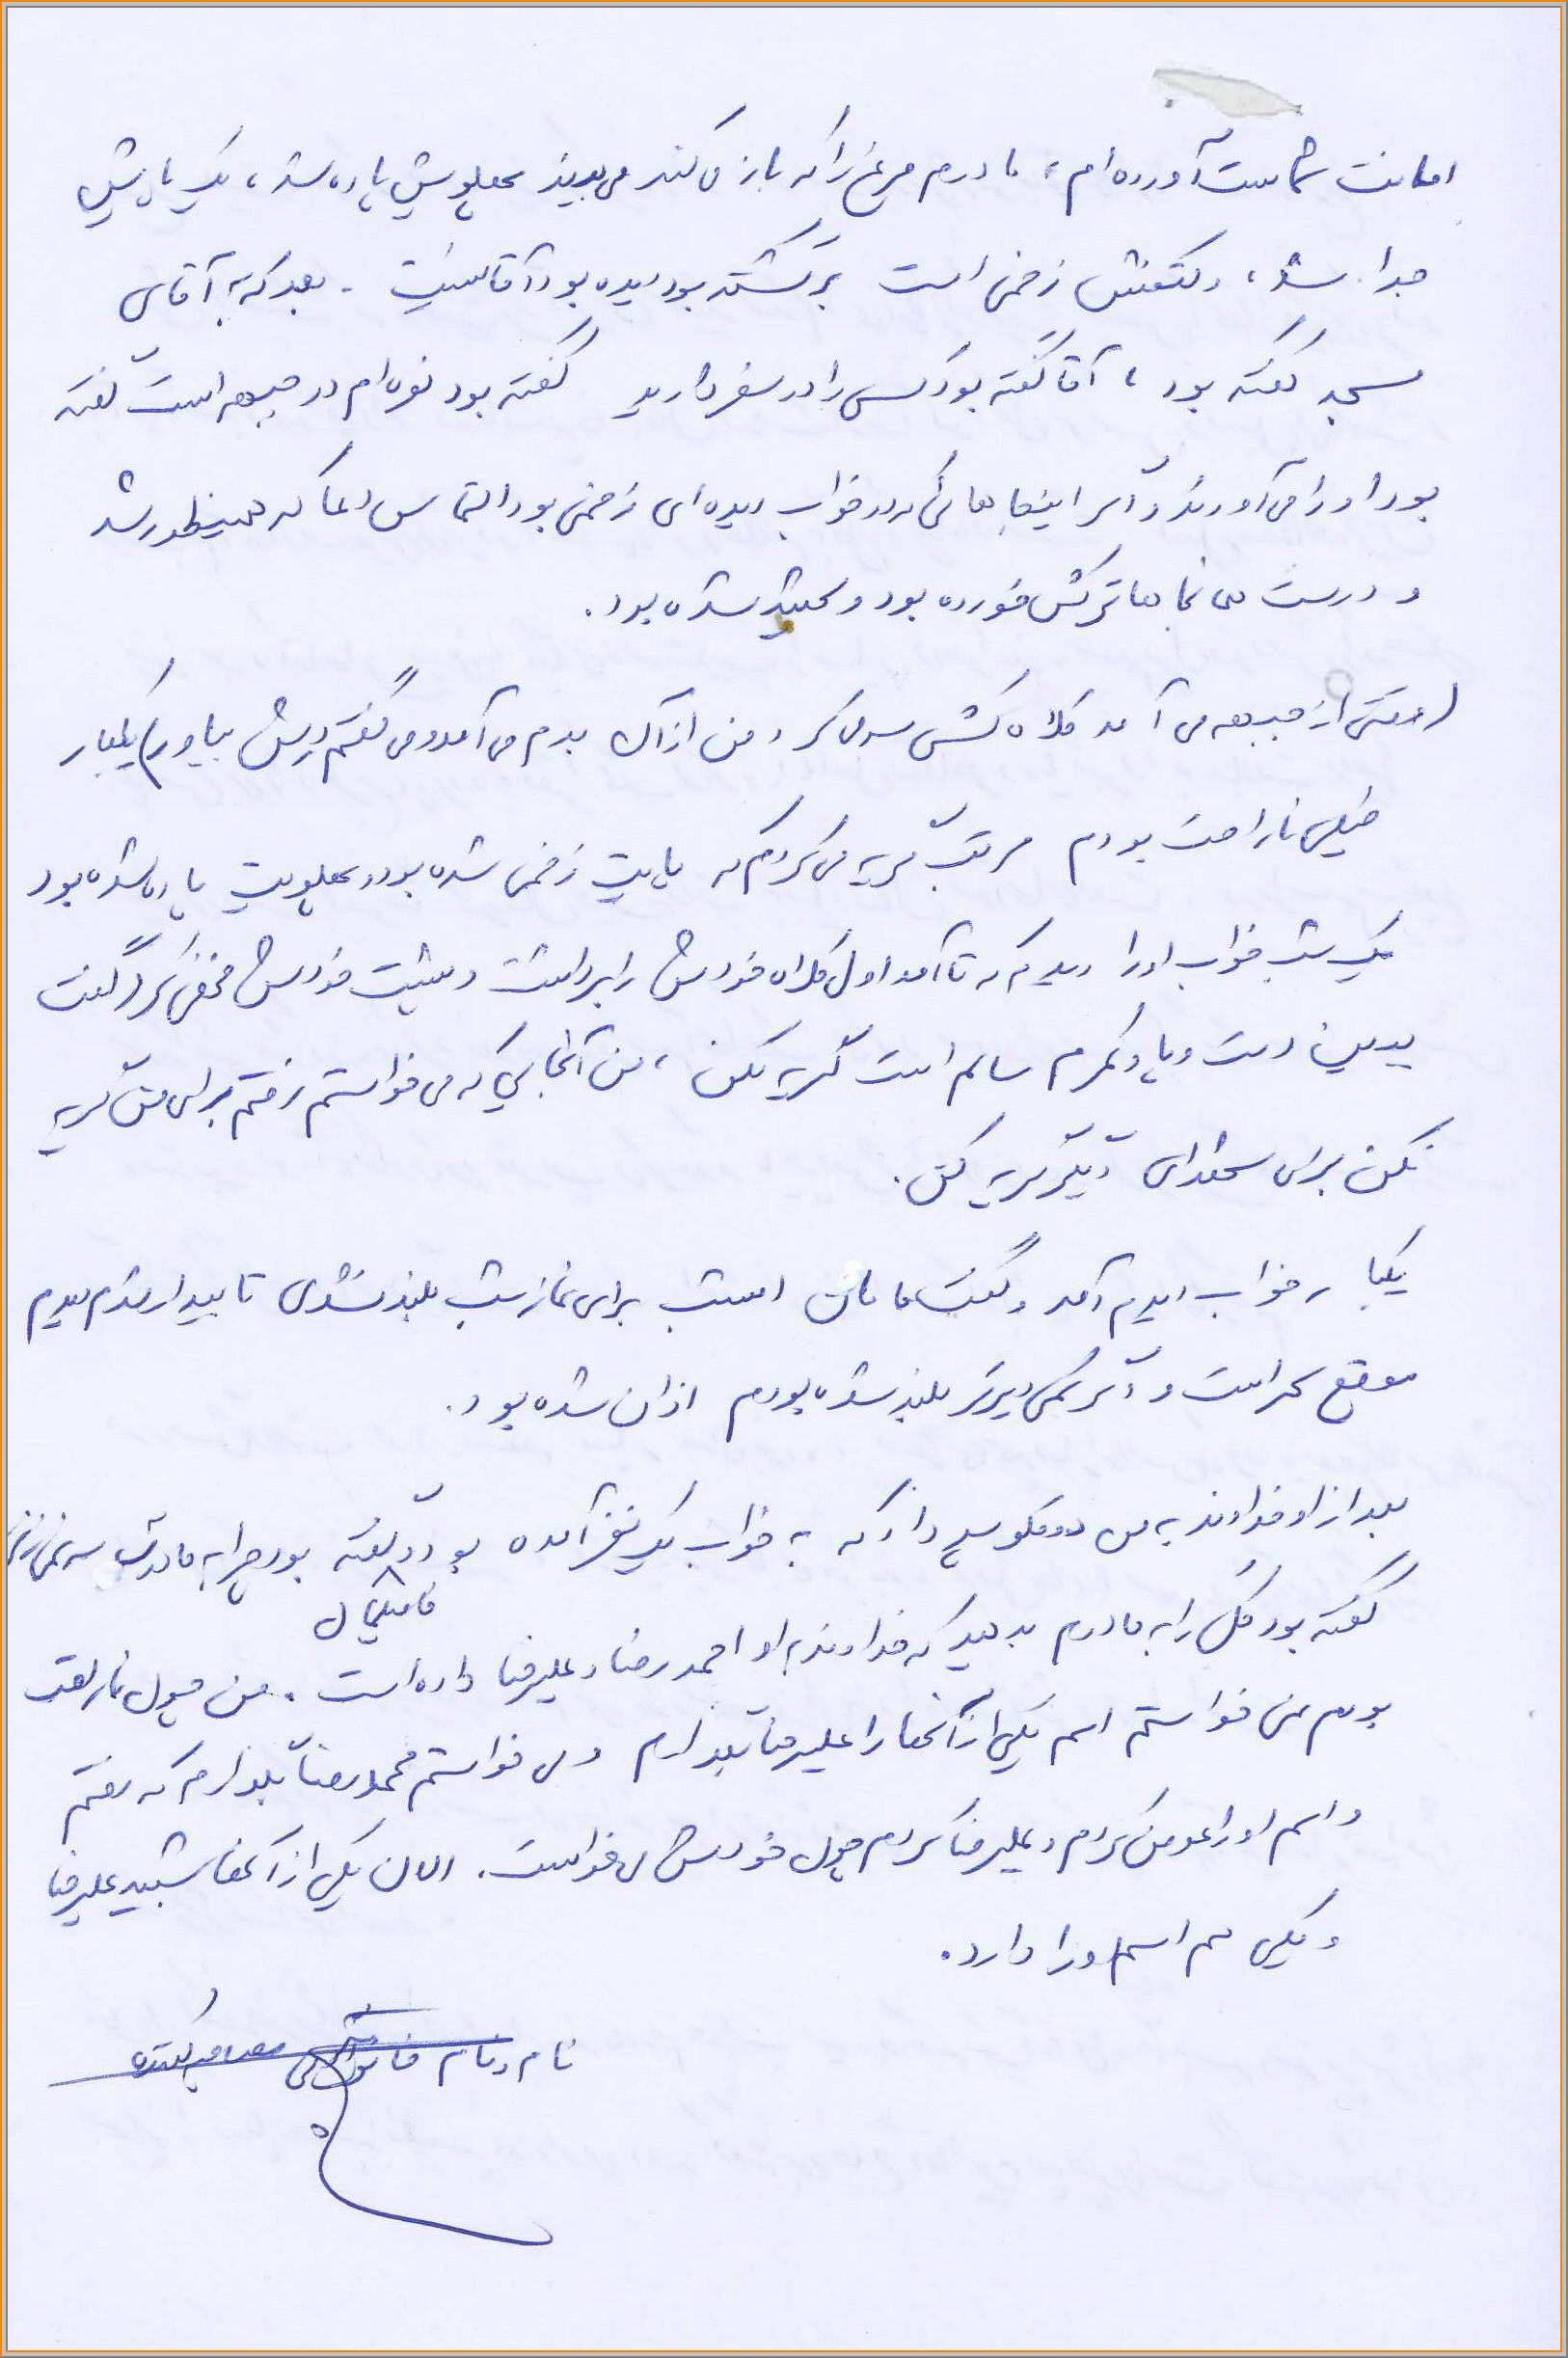 امانت شماست آورده‌ام، مادرم مرغ را که باز می‌کند می‌بیند پهلویش پاره شد، یک پایش
جدا شد، و کتفش زخمی است برگشته بود دیده بود آقا نیست. بعد که به آقای
مسجد گفته بود، آقا گفته بود کسی را در سفر دارید گفته بود نوه‌ام در جبهه است گفته
بود او را می‌آورند و اگر اینجاهائی که در خواب دیده‌ای زخمی بود التماس دعا که همینطور شد
و درست همانجاها ترکش خورده بود و شهید شده بود.
(وقتی از جبهه می‌آمد کلاه کشی سر می‌کرد و من از آن بدم می‌آمد و می‌گفتم درش بیاور) یکبار
خیلی ناراحت بودم مرتب گریه می‌کردم که پایت زخمی شده بود و پهلویت پاره شده بود
یک شب خواب او را دیدم که تا آمد اول کلاه خودش را برداشت و پشت خودش مخفی کرد گفت
ببین دست و پا و کمرم سالم است گریه نکن، من آنجایی که می‌خواستم رفتم برای من گریه
نکن برای شهدای دیگر گریه کن.
یکبار خواب دیدم آمد و گفت مامان امشب برای نماز شب بلند نشدی تا بیدار شدم دیدم
موقع سحر است و اگر کمی دیرتر بلند شده بودم اذان شده بود.
بعد از او خداوند به من دوقلو داد که به خواب یک نفر آمده بود و گفته بود چرا به مادرت سر نمی‌زنی
فامیلمان
گفته بود گل را به مادرم بدهید که خداوند به او احمدرضا و علیرضا داده است. من چون ناراحت
بودم نمی‌خواستم اسم یکی از آنها را علیرضا بگذارم و می‌خواستم محمدرضا بگذارم که رفتم
و اسم او را عوض کردم و علیرضا کردم چون خودش می‌خواست. الان یکی از آنها شبیه علیرضا
و یکی هم اسم او را دارد.
نام و نام خانوادگی مصاحبه کننده